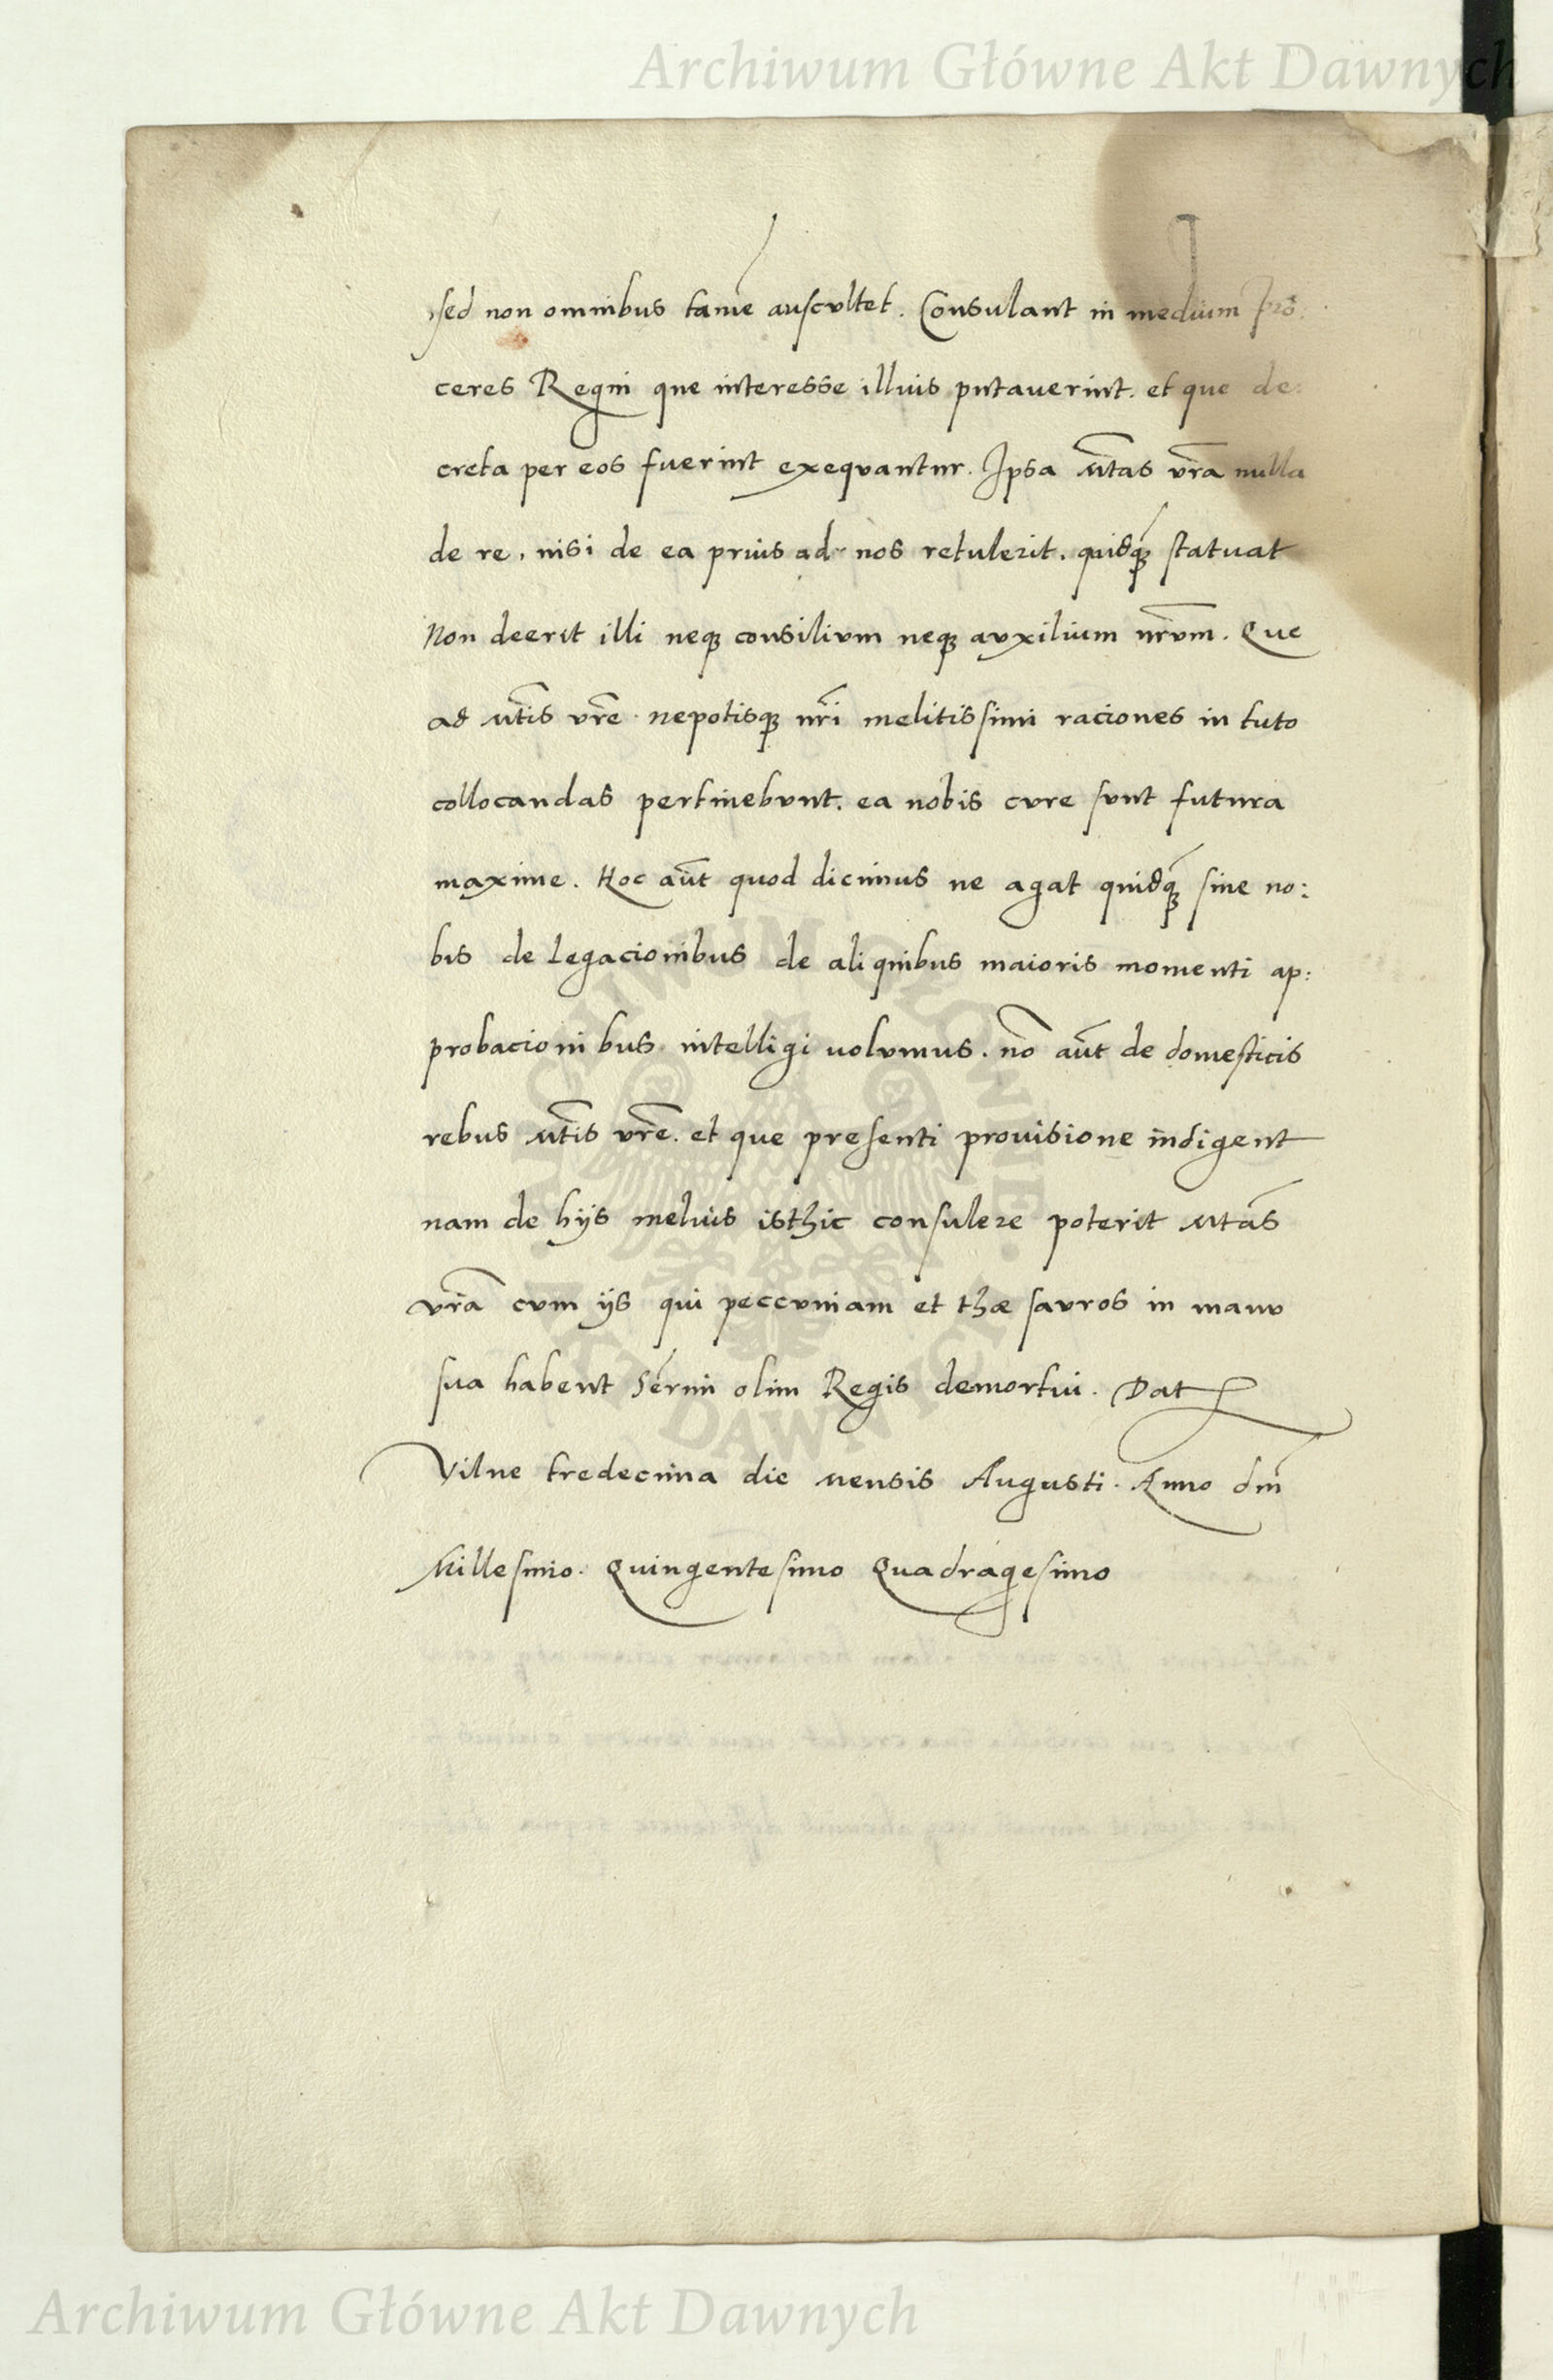 Archiwum Główne Akt Dawnych
sed non omnibus tamē auscvltet. Consulant in medium Pro:
ceres Regni que interesse illius putauerint. et que de:
creta per eos fuerint exeqvantur. Ipsa Mtas vrā nulla
de re, nisi de ea prius ad nos retulerit, quidq3 statuat
Non deerit illi neq3 consilivm neq3 avxilium nrvm. Que
ad Mtis vrē nepotisq3 nri melitissimi raciones in tuto
collocandas pertinebvnt, ea nobis cvre svnt futura
maxime. Hoc aut quod dicimus ne agat quidq3 sine no:
bis de legacionibus de aliquibus maioris momenti ap:
probacionibus intelligi volvmus. nō aut de domesticis
rebus Mtis vrē. et que presenti prouisione indigent
nam de hijs melius isthic consulere poterit Mtas
vrā cvm ijs qui peccvniam et thæsavros in manv
sua habent Sermi olim Regis demortui. Dat
Vilne tredecima die mensis Augusti. Anno dni
Millesimo. Quingentesimo Quadragesimo
ARCHIWUM GŁÓWNE AKT DAWNYCH
Archiwum Główne Akt Dawnych